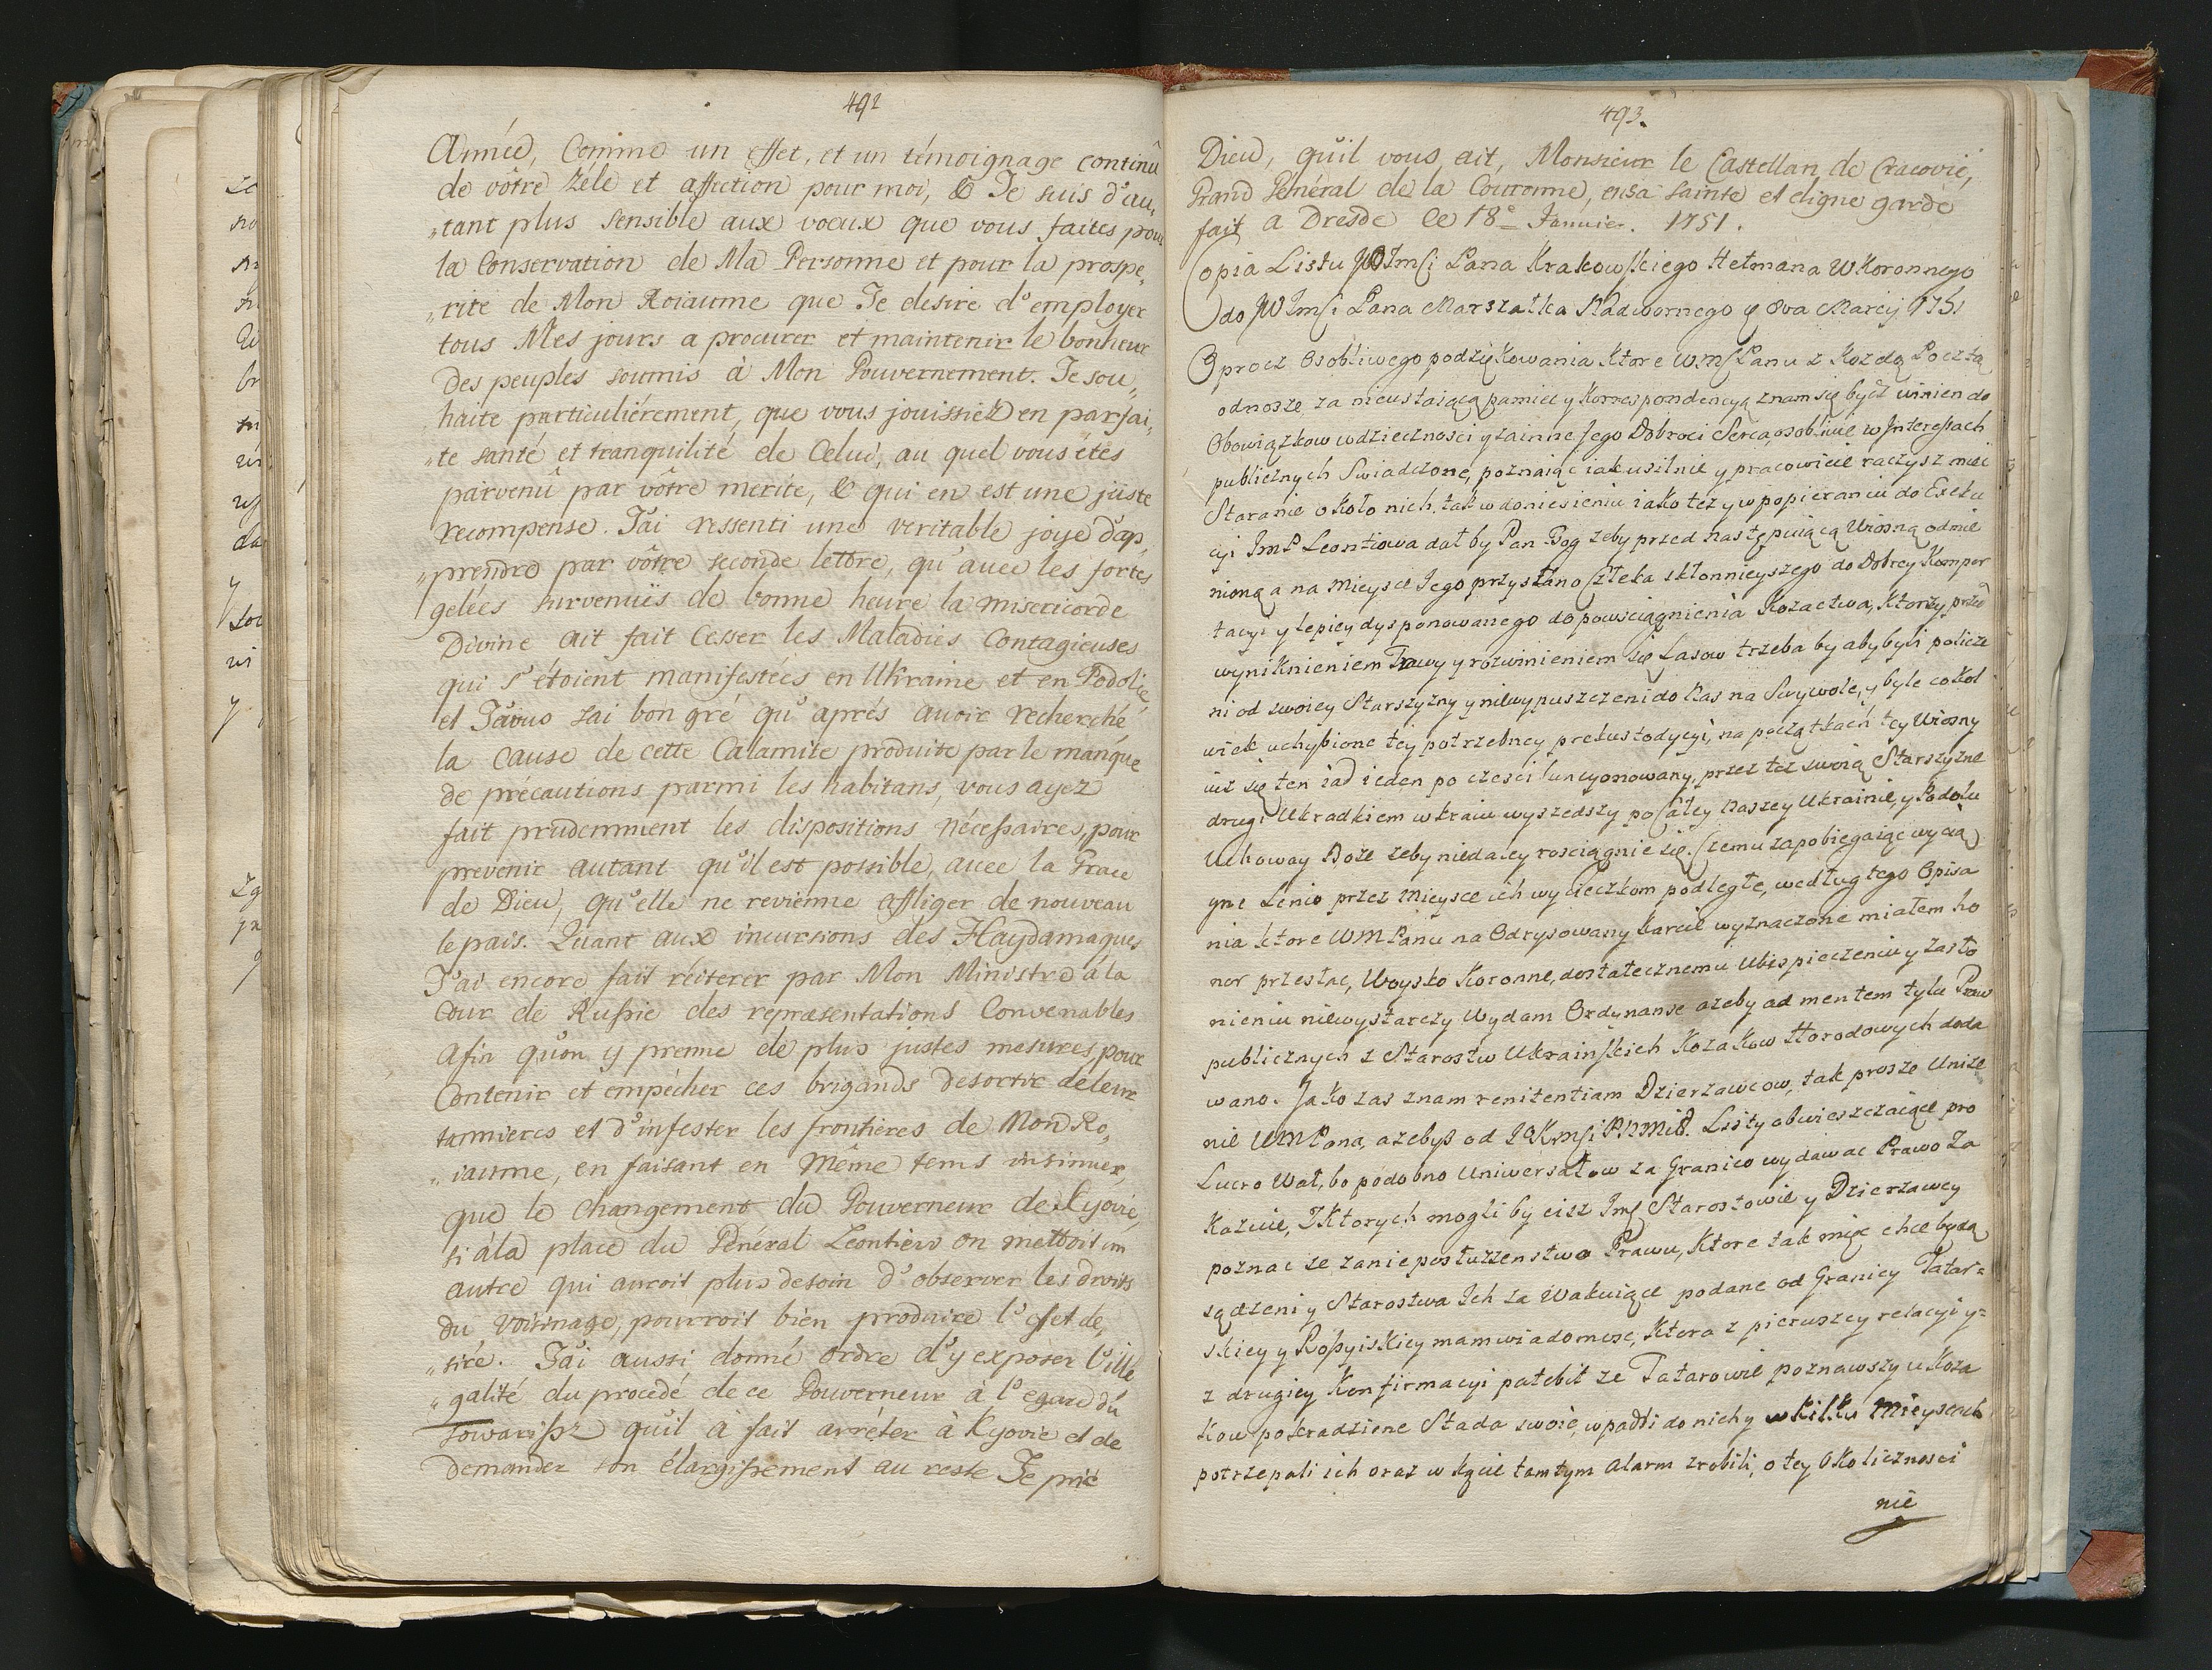 492
Année, Comme un effet, et un témoignage continû
de vôtre Zéle et affection pour moi, & Je suis d'au„
„tant plus sensible aux voeux que vous faites pour
la Conservation de Ma Personne et pour la prospe„
„rité de Mon Roiaume que Je desire d'employer
tous Mes jours a procurer et maintenir le bonheur
des peuples soumis à Mon Gouvernement. Je sou„
haite particuliérement, que vous jouissiez en parfai„
„te santé et tranquilité de Celui, au quel vous étes
parvenû par vôtre merite, & qui en est une juste
recompense. J'ai ressenti une veritable joye d'ap„
„prendre par vôtre seconde lettre, qu'avec les fortes
gelées survenuës de bonne heure la misericorde
Divine ait fait Cesser les Maladies Contagieuses
qui s'étoient manifestées en Ukraine et en Podolie,
et Je vous sai bon gré qu'aprés avoir recherché
la cause de cette Calamité produite par le manque
de précautions parmi les habitans, vous ayez
fait prudemment les dispositions nécessaires, pour
prevenir autant qu'il est possible, avec la Grace
de Dieu, qu'elle ne revienne affliger de nouveau
le païs. Quant aux incursions des Haydamaques
J'ai encore fait réiterer par Mon Ministre à la
Cour de Russie des representations Convenables
afin qu'on y prenne de plus justes mesures, pour
Contenir et empécher ces brigands de sortir de leur
tannieres et d'infester les frontieres de Mon Ro„
„iaume, en faisant en Même tems insinuer,
que le changement du Gouverneur de Kyovie,
si à la place du Général Leontiew on mettoit un
autre qui auroit plus de soin d'observer les droits
du voisinage, pourroit bien produire l'effet de„
„siré. J'ai aussi donné ordre d'y exposer l'ille
„galité du procedé de ce Gouverneur à l'egard du
Towarisz qu'il à fait arréter à Kyovie et de
demander son élargissement au reste Je prie
493.
Dieu, qu'il vous ait, Monsieur le Castellan de Cracovie,
Grand Général de la Couronne, en sa sainte et digne garde
fait a Dresde le 18e Janvier. 1751.
Copia Listu JWJmsi Pana Krakowskiego Hetmana WKoronnego
do JWJmsi Pana Marszałka Nadwornego 8va Marcij 1751
Oprocz Osobliwego podziękowania ktore WMsPanu z Kozdą Pocztą
odnosze za nieustaiącą pamięć y Korrespondencyą znam się być winien do
Obowiązkow wdzięcznosci y za inne Jego Dobroci Serca, osobliwie w Interessach
publicznych Swiadczone, poznaiąc iak usilnie y pracowicie raczysz miec
Staranie około nich, tak w doniesieniu iako też y w popieraniu do Exeku
cyi JmP Leontiowa dałby Pan Bog zeby przed następuiącą Wiosną odmie
nioną a na Mieysce Jego przysłano Człeka skłonnieyszego do Dobrey Kompor
tacyi y lepiey dysponowanego do powsciągnienia Kozactwa, Ktorzy przed
wyniknieniem Trawy y rozwinieniem się Lasow trzeba by aby byli policze
ni od swoiey Starszyzny y niewypuszczeni do Nas na Swywole, y byle cokol
wiek uchybione tey potrzebney prekustodycyi, na początkach tey Wiosny
iuż się ten iad ieden po częsci funcyonowany, przez też swoią Starszyzne
drugi Ukradkiem w kraiu wyszedszy po Całey Naszey Ukrainie, y Podolu
Uchoway Boże zeby niedaley rosciągnie się. Czemu zapobiegaiąc wycią
gne Linio przez Mieysce ich wycieczkom podległe, według tego Opisa
nia ktore WMPanu na Odrysowany Karcie wyznaczone miałem ho
nor przesłac, Woysko Koronne, dostatecznemu Ubespieczeniu y Zasło
nieniu niewystarczy Wydam Ordynanse azeby ad mentem tylu Praw
publicznych z Starostw Ukrainskich Kozakow Horodowych doda
wano. Jako zas znam renitentiam Dzierzawcow, tak prosze Unize
nie WMPana, azebyś od JKrmsi PNMiłł. Listy obwieszczaiące pro
Lucro Wał, bo podobno Uniwersałow za Granico wydawac Prawo Za
Kazuie, Z Ktorych mogliby cisz Jms Starostowie y Dzierzawcy
poznac ze zanieposłuszenstwo Prawu, Ktore tak miec chce będą
sądzeni y Starostwa Ich za Wakuiące podane od Granicy Tatar=
skiey y Rossyiskiey mam wiadomosc, Ktora z pierwszey relacyi y=
z drugiey Konfirmacyi patebit ze Tatarowie poznawszy u Koza
kow pokradzione Stada swoie, wpadli do nich y w kilku Mieyscach
potrzepali ich oraz w kącie tamtym alarm zrobili, o tey okolicznosci
nie